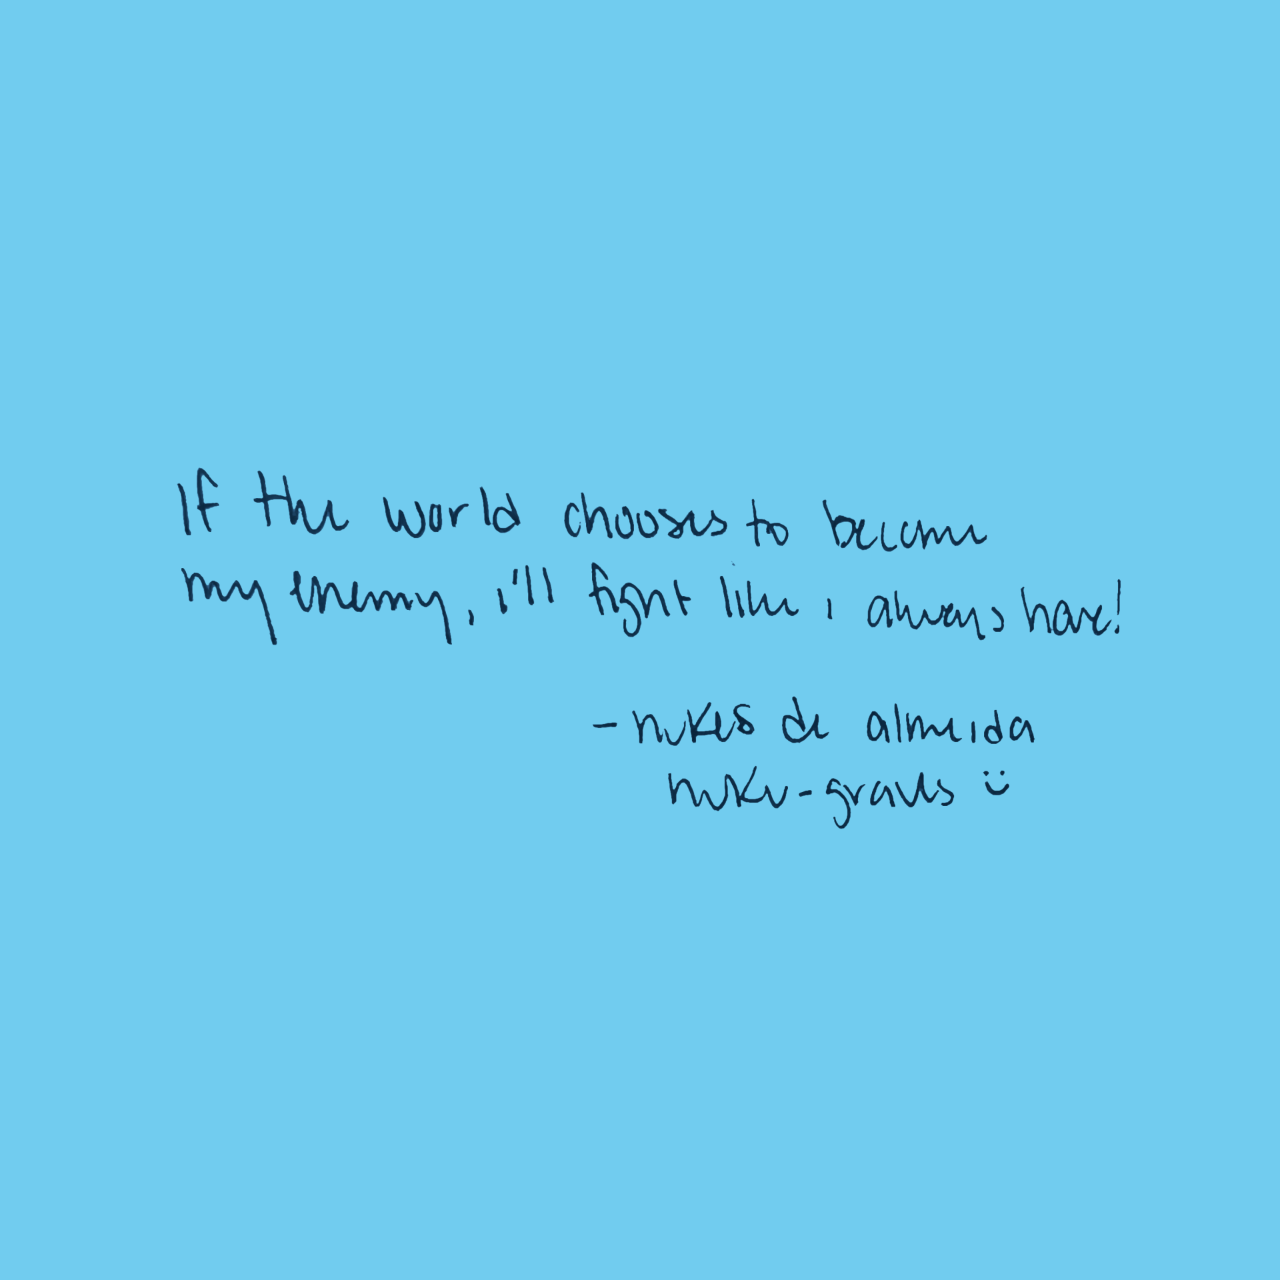 If the world chooses to become
my enemy, i'll fight like i always have!
- nukes de almeida